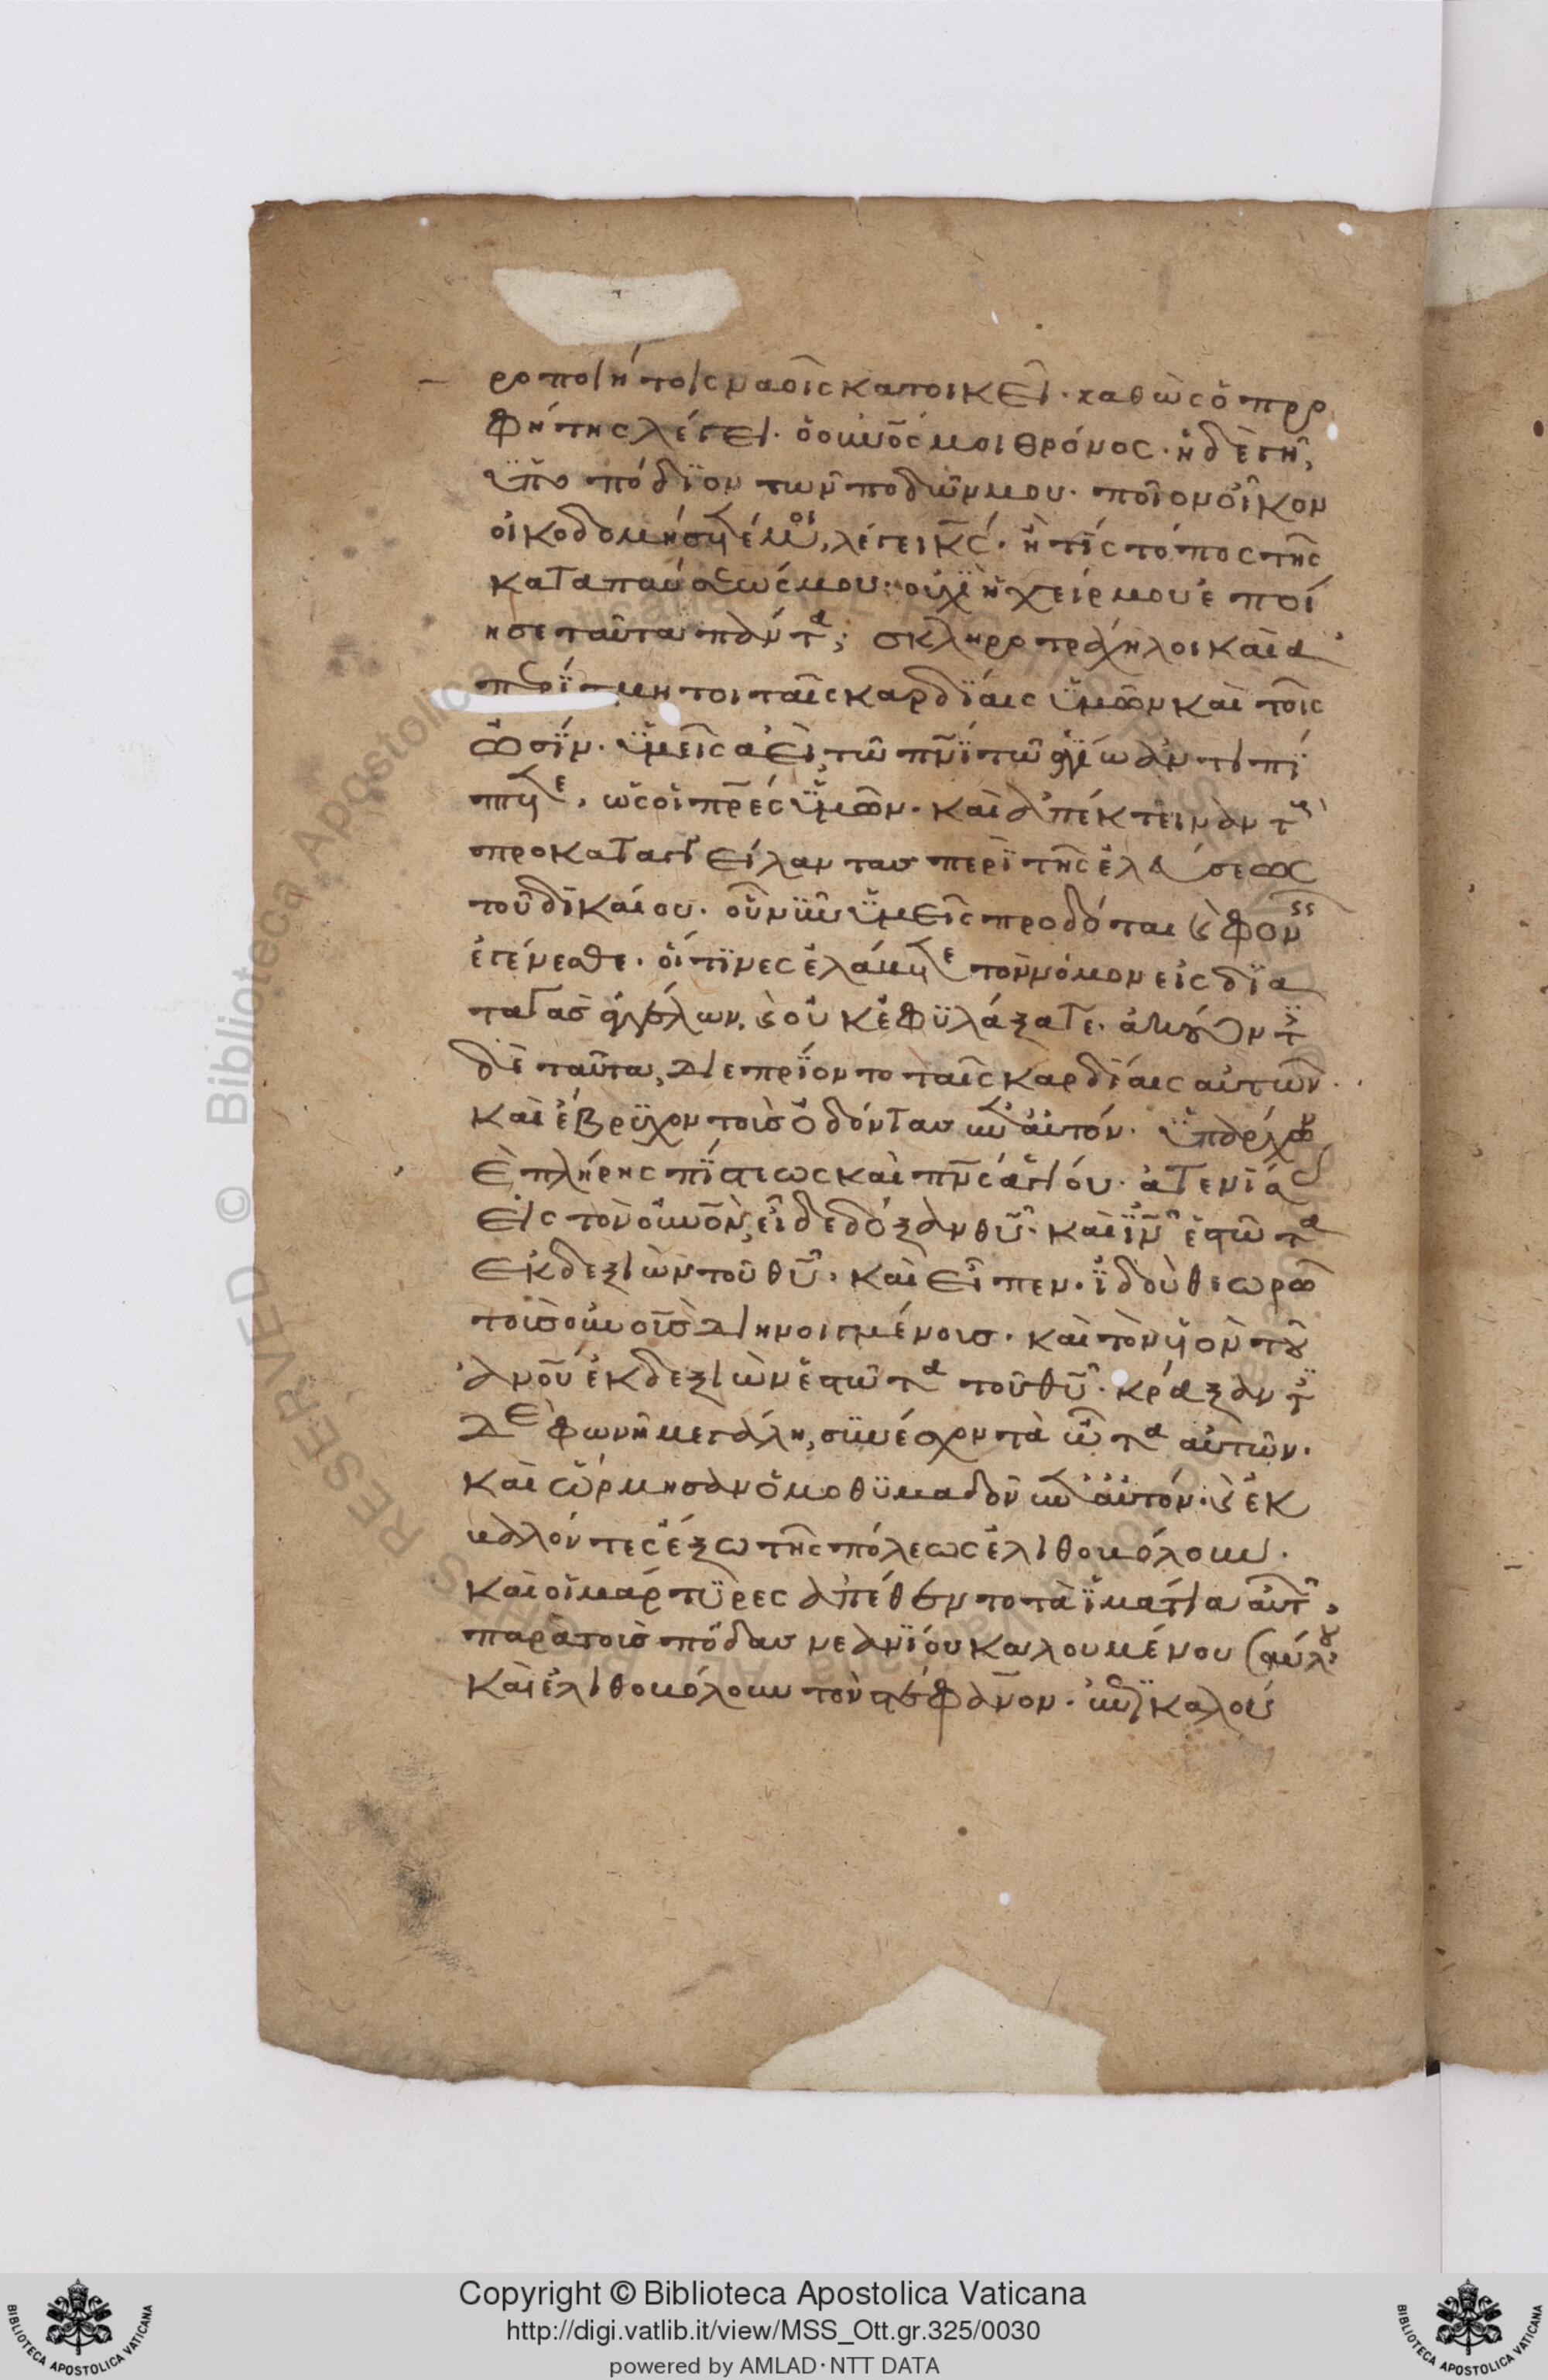 ροποιήτοις ναοῖς κατοικεῖ. καθὼς ὁ προ
φήτης λέγει. ὁ οὐνός μοι θρόνος. ἡ δὲ γῆ,
ϋποπόδϊον τῶν ποδῶν μου. ποῖον οἶκον
οἰκοδομήσητέ μοι, λέγει κς. ἢ τίς τόπος τῆς
καταπαύσεώς μου. οὐχὶ ἡ χείρ μου ἐποί
ησε ταῦτα πάντα; σκληροτράχηλοι καὶ ἀ
περίτμητοι ταῖς καρδΐαις ϋμῶν καὶ τοῖς
ὠσΐν. ϋμεῖς ἀεὶ τῶ πνϊ τῶ ἁγίω ἀντιπί
πτετε, ὡς οἱ πρες ϋμῶν. καὶ ἀπέκτειναν τοὺς
προκαταγγείλαντας περὶ τῆς ἐλεύσεως
τοῦ δικαίου. οὗ νῦν ϋμεῖς προδόται καὶ φονεῖς
ἐγένεσθε. οἵτϊνες ἐλάβετε τὸν νόμον εἰς δϊα
ταγὰς ἀγγέλων, καὶ οὐκ ἐφϋλάξατε. ἀκούοντες
δὲ ταῦτα, διεπρΐοντο ταῖς καρδΐαις αὐτῶν.
καὶ ἔβρϋχον τοὺς ὀδόντας ἐπ' αὐτόν. ϋπάρχων
δὲ πλήρης πΐστεως καὶ πνς ἁγίου. ἀτενίσας
εἰς τὸν οὐνὸν, εἶδε δόξαν θυ. καὶ ιν ἑστῶτα
ἐκ δεξιῶν τοῦ θυ. καὶ εἶπεν. ϊδοὺ θεωρῶ
τοὺς οὐνοὺς διηνοιγμένους. καὶ τὸν υἱὸν τοῦ
ἀνου ἐκ δεξιῶν ἑστῶτα τοῦ θυ. κράξαντες
δὲ φωνῆ μεγάλη, συνέσχον τὰ ὦτα αὐτῶν.
καὶ ὥρμησαν ὁμοθϋμαδὸν ἐπ' αὐτόν. καὶ ἐκ
βαλόντες ἔξω τῆς πόλεως ἐλιθοβόλουν.
καὶ οἱ μάρτϋρες ἀπέθεντο τὰ ϊμάτια αὐτῶν,
παρὰ τοὺς πόδας νεανΐου καλουμένου σαύλου
καὶ ἐλιθοβόλουν τὸν στέφανον. ἐπικαλού
Copyright © Biblioteca Apostolica Vaticana
http://digi.vatlib.it/view/MSS_Ott.gr.325/0030
powered by AMLAD·NTT DATA